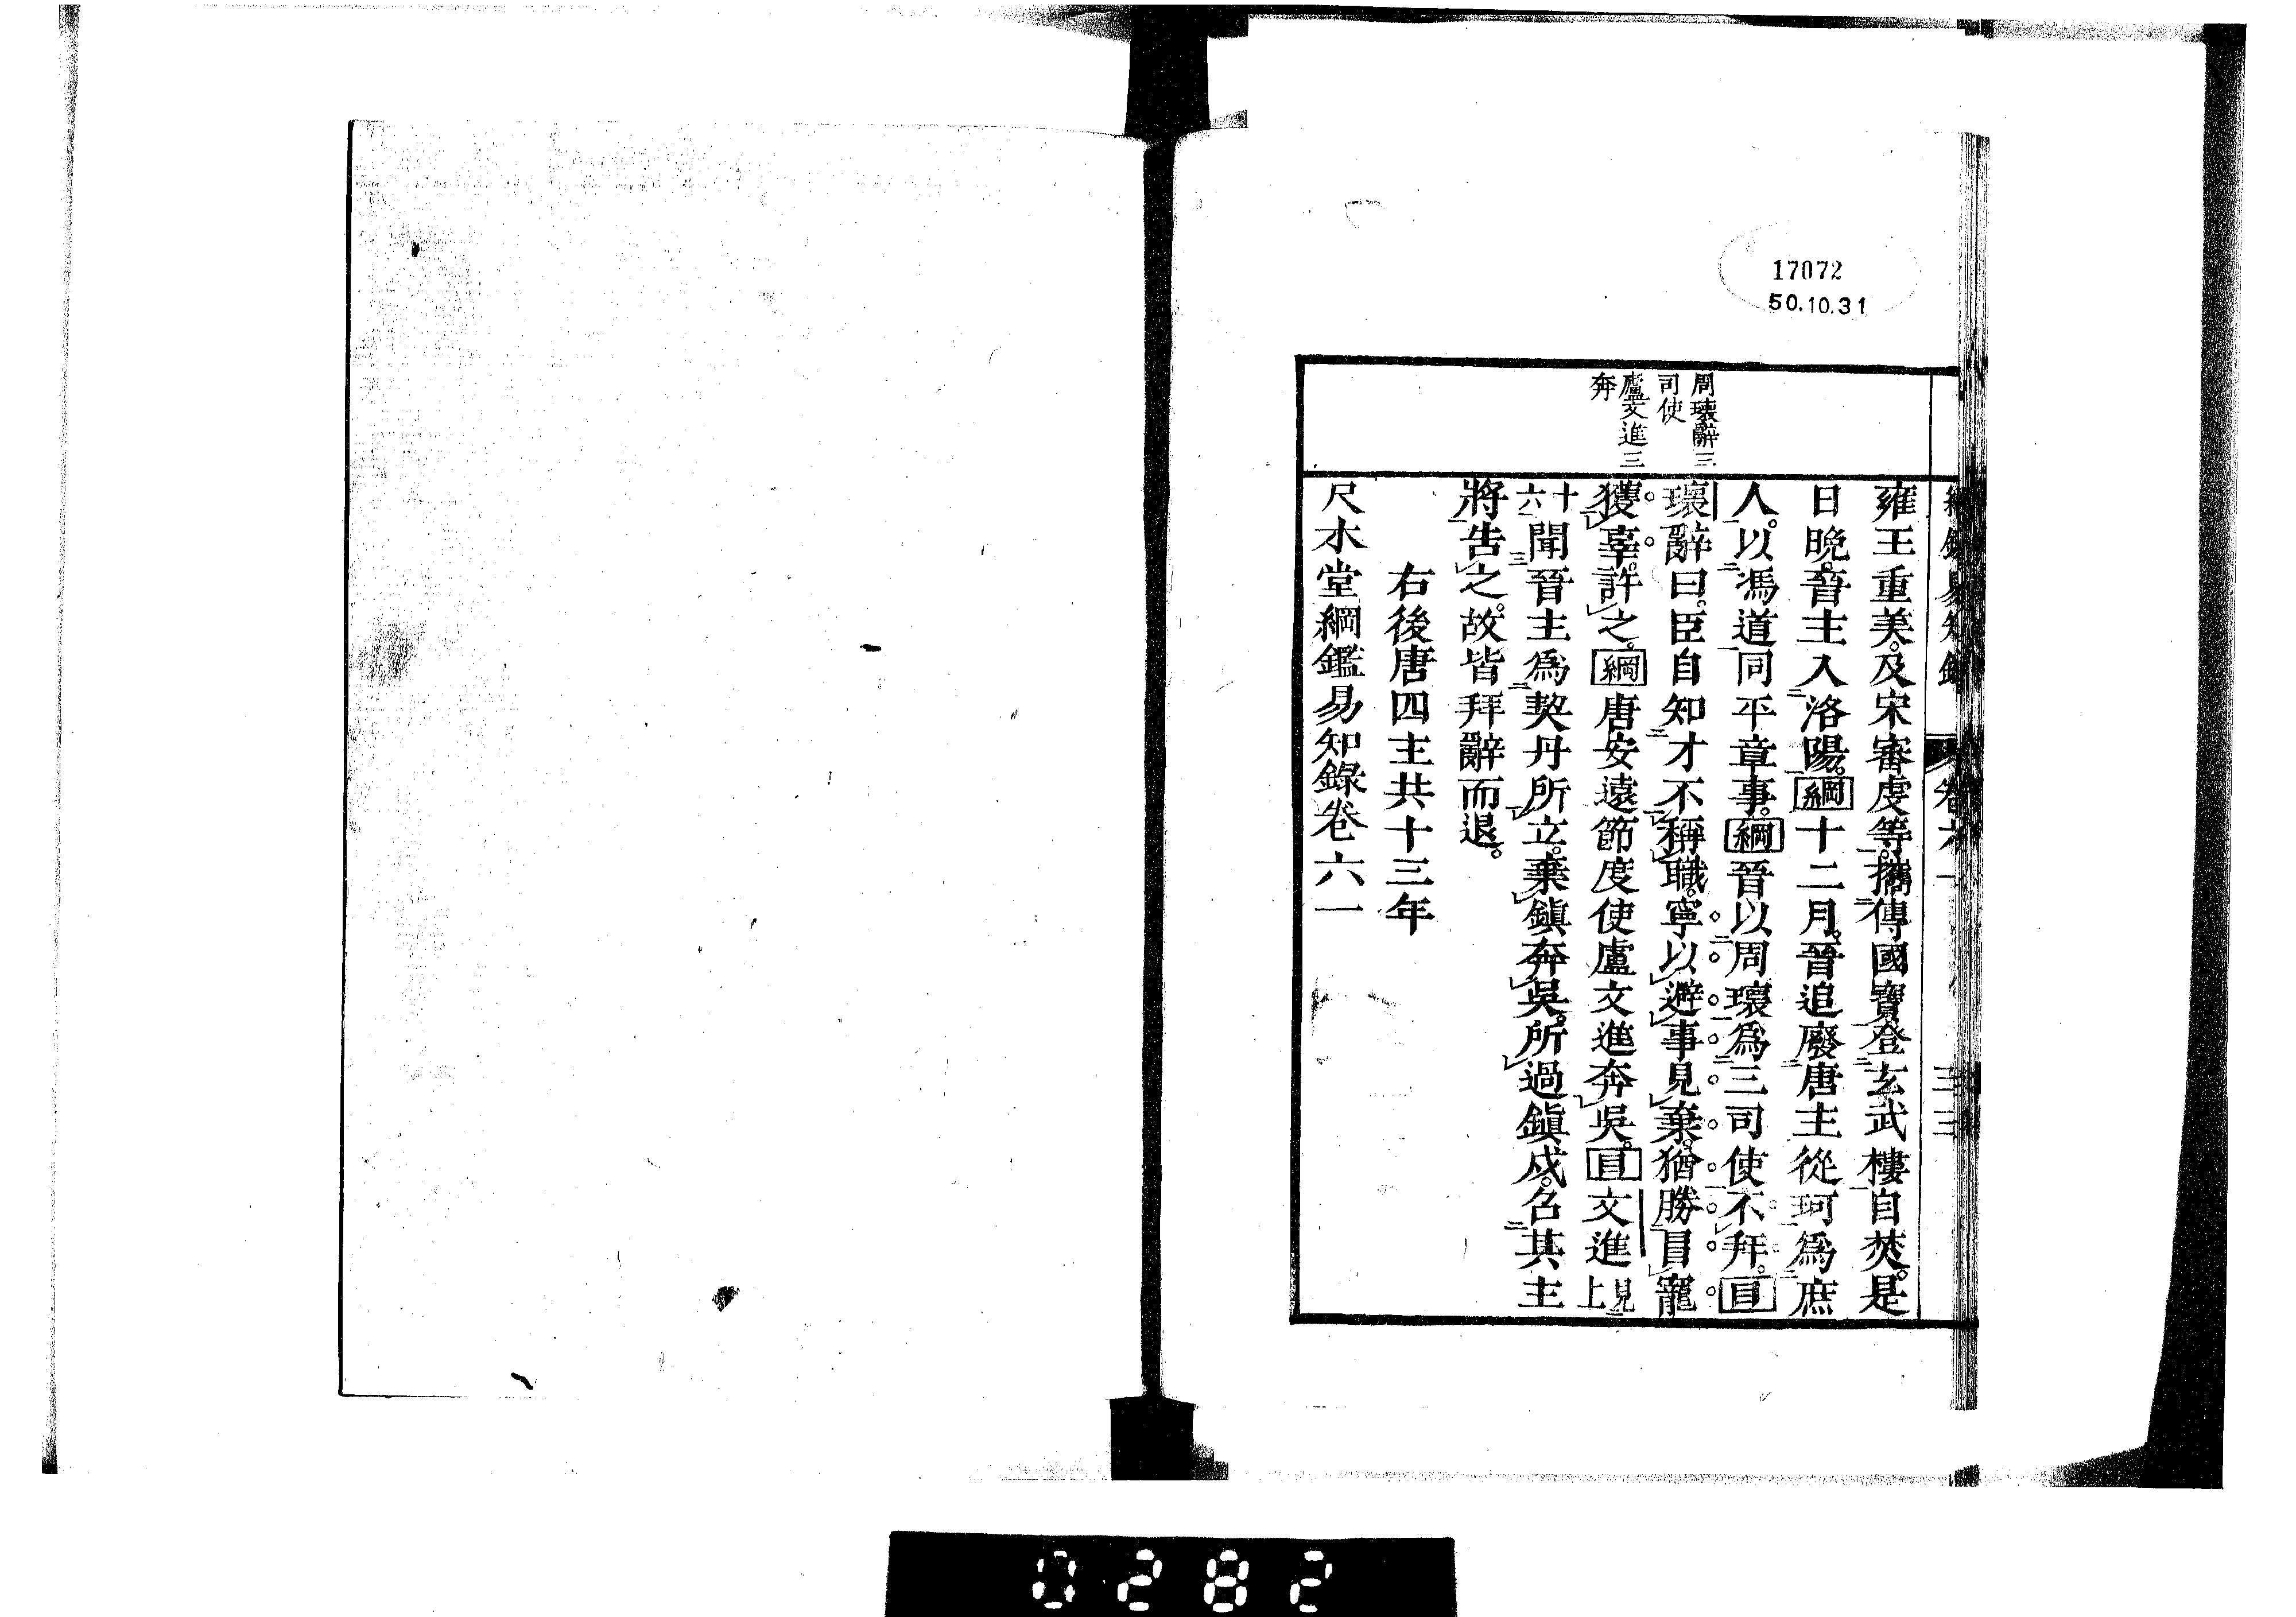 17072
50.10.31
周瓌辭三
司使
盧文進三
奔
雍王重美。及宋審虔等。攜傳國寶登玄武樓自焚。是
日晚。晉主入洛陽。綱十二月。晉追廢唐主從珂爲庶
人。以馮道同平章事。綱晉以周瓌爲三司使不拜。目
瓌辭曰。臣自知才不稱職。寧以避事見棄。猶勝冒寵
獲辜。許之。綱唐安遠節度使盧文進奔吳。目文進見上
十六聞晉主爲契丹所立。棄鎭奔吳。所過鎭戍。召其主
將告之。故皆拜辭而退。
右後唐四主共十三年
尺木堂綱鑑易知錄卷六一
0282